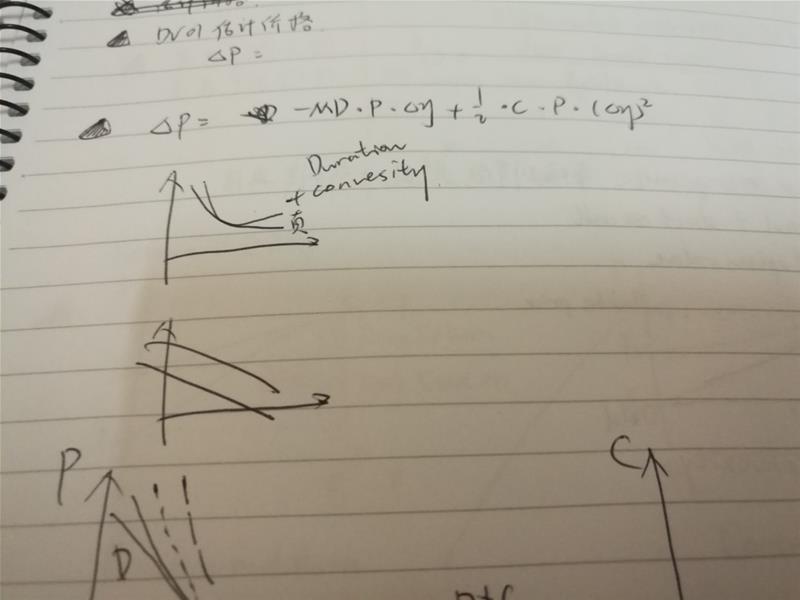 DV01 估计价格
ΔP =
ΔP = -MD·P·Δy + 1/2·C·P·(Δy)²
Duration
+ convesity
真
P
C
D